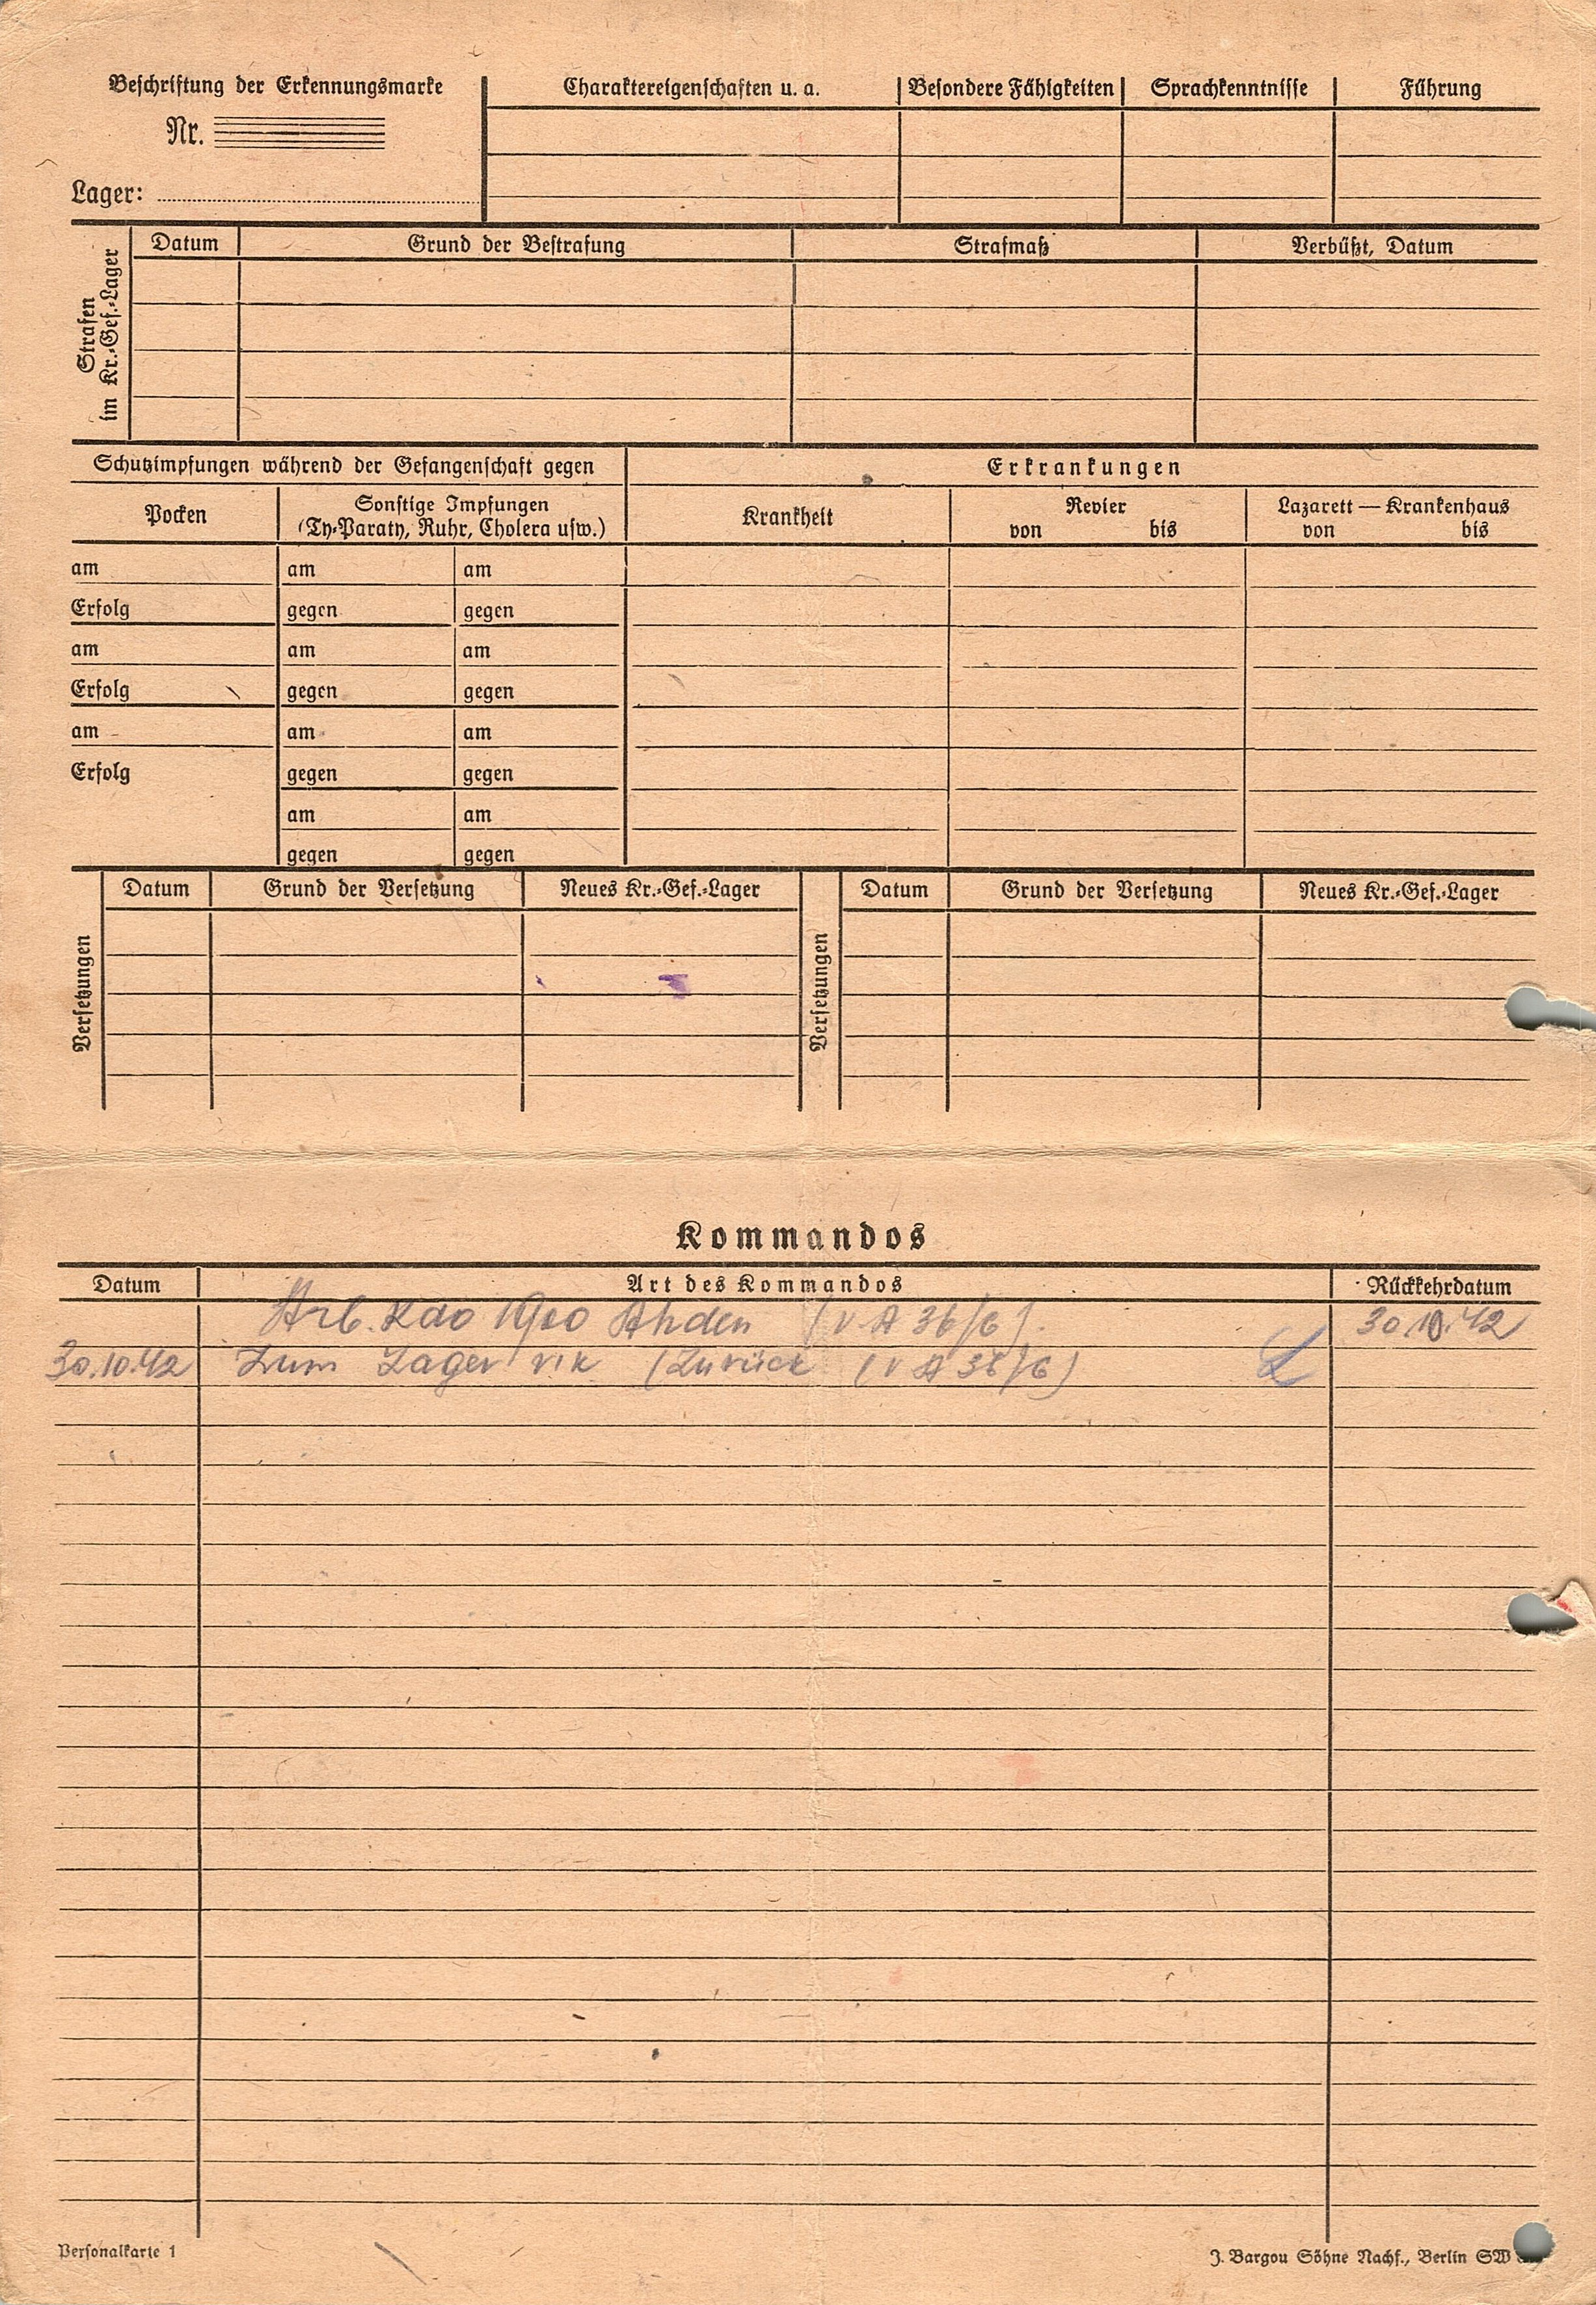 Beschriftung der Erkennungsmarke
Nr.
Lager:
Charaktereigenschaften u. a. Besondere Fähigkeiten Sprachkenntnisse Führung
Strafen
im Kr.-Gef.-Lager
Datum Grund der Bestrafung Strafmaß Verbüßt, Datum
Schutzimpfungen während der Gefangenschaft gegen
Erkrankungen
Pocken
Sonstige Impfungen
(Ty-Paraty, Ruhr, Cholera usw.)
Krankheit
Revier
von bis
Lazarett — Krankenhaus
von bis
am am am
Erfolg gegen gegen
am am am
Erfolg gegen gegen
am am am
Erfolg gegen gegen
am am
gegen gegen
Versetzungen
Datum Grund der Versetzung Neues Kr.-Gef.-Lager
Versetzungen
Datum Grund der Versetzung Neues Kr.-Gef.-Lager
Kommandos
Datum Art des Kommandos Rückkehrdatum
Arb. Kdo 1900 Ahden (V A 36/6). 30.10.42
30.10.42 Zum Lager (Zurück (V A 36/6)
Personalkarte 1
J. Bargou Söhne Nachf., Berlin SW